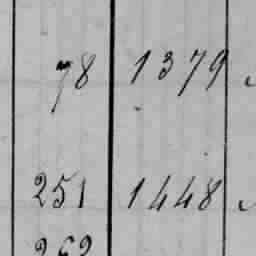 78 1379
251 1448
262